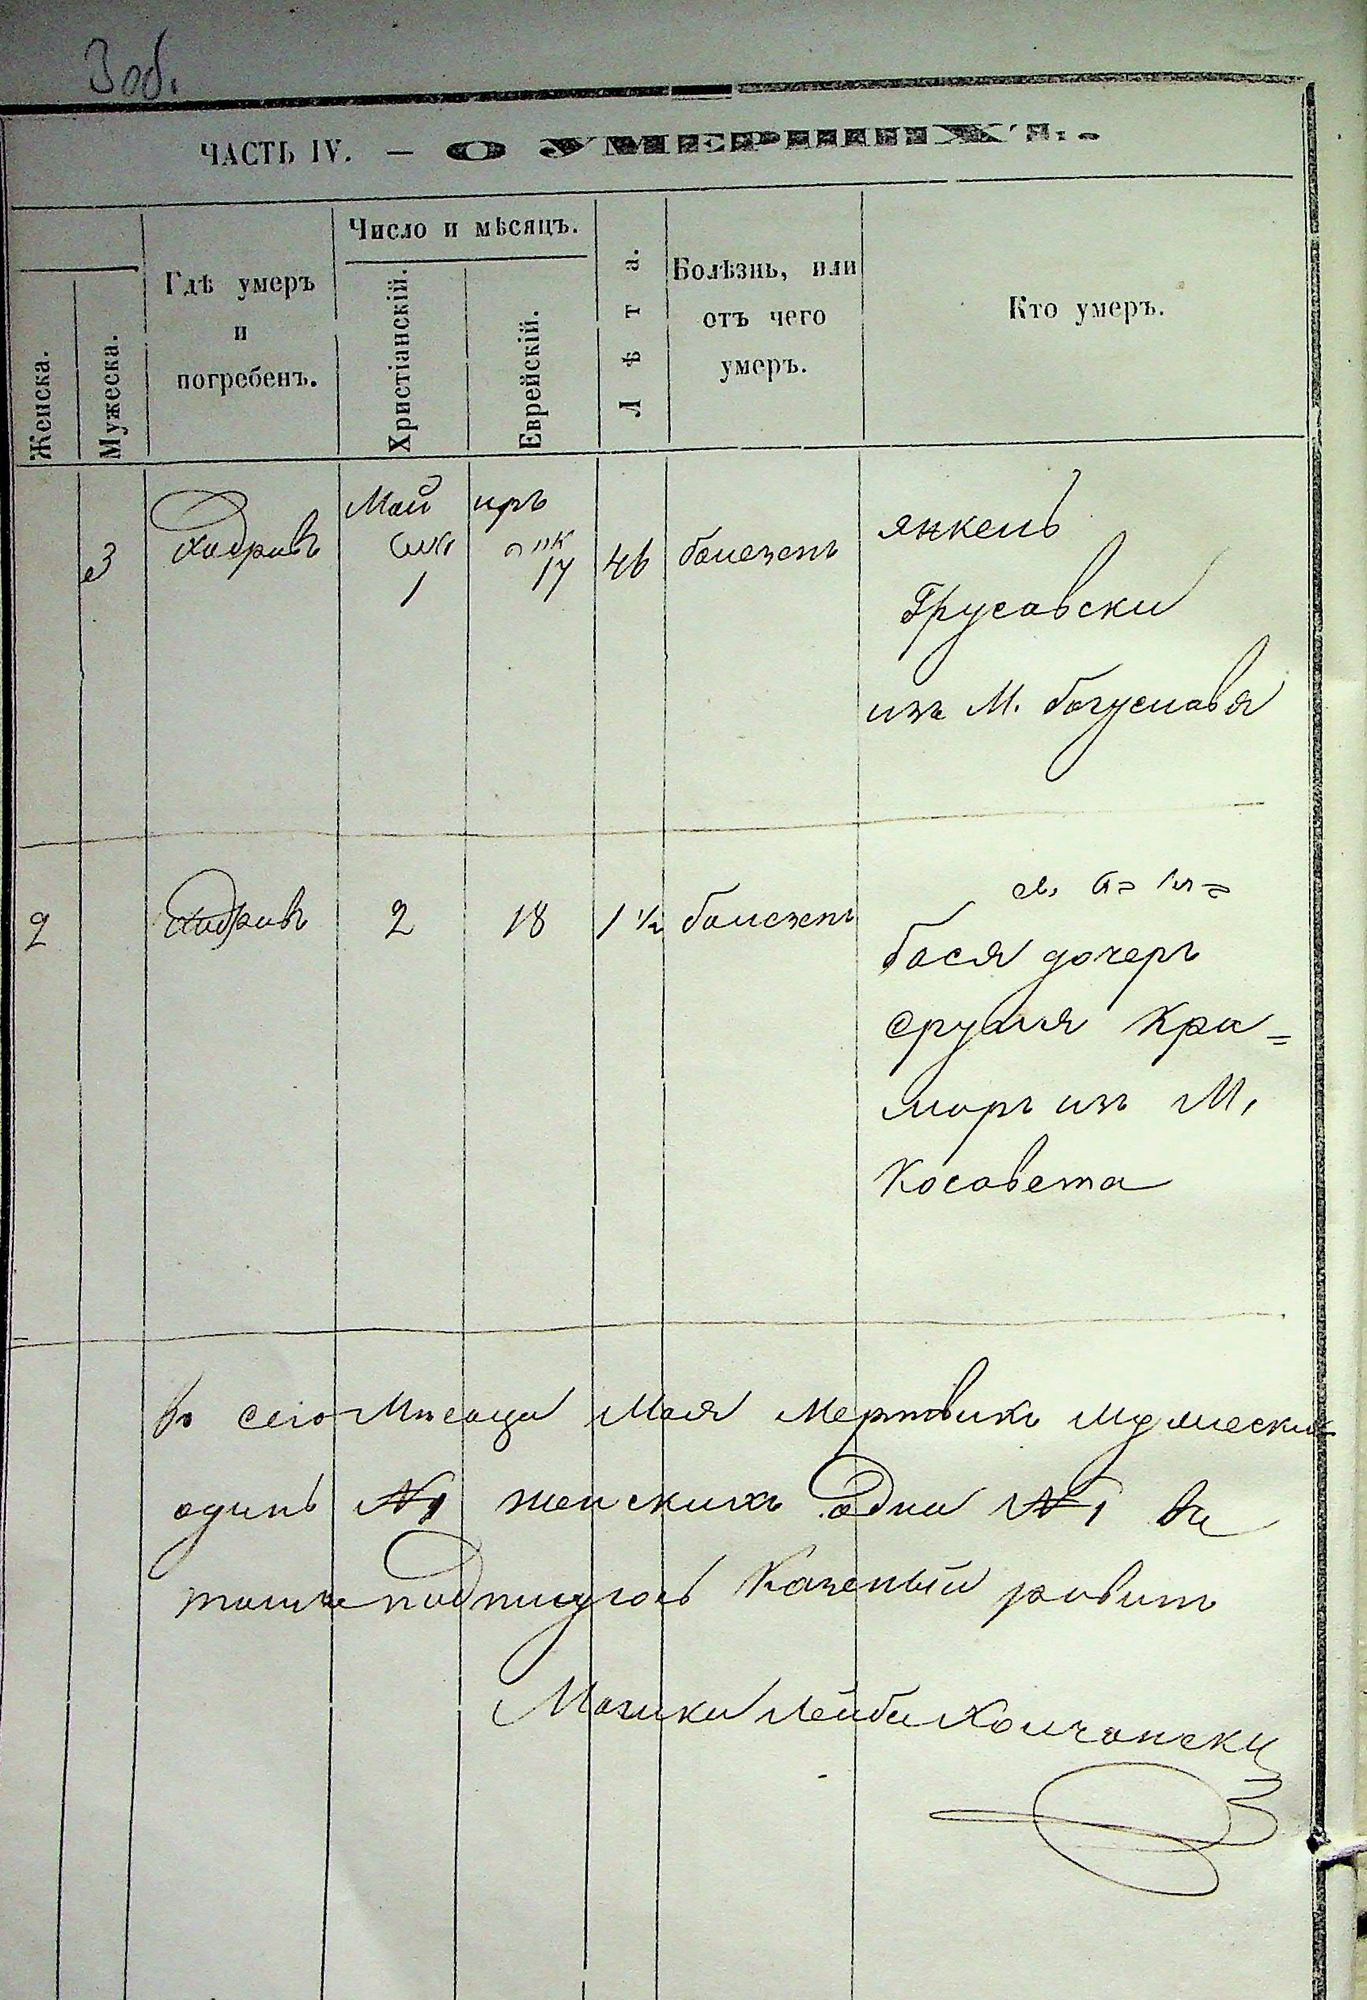 3 об.
ЧАСТЬ IV. — О УМЕРШИХЪ.
Женска.
Мужеска.
Гдѣ умеръ
и
погребенъ.
Число и мѣсяцъ.
Христіанскій.
Еврейскій.
Лѣта.
Болѣзнь, или
отъ чего
умеръ.
Кто умеръ.
Май иръ
3 1 17 46 болезень янкель
Грусавски
изъ М. богуслава
2 2 18 1 ½ болезень
бася дочеръ
сруля Кра=
моръ изъ М.
Косавета
во сего Мѣсаца Мая Мертвихъ Мужеских
одинъ №1 женскихъ одна №1 ва
подписуюсь Казеный равинъ
Мошка Лейба